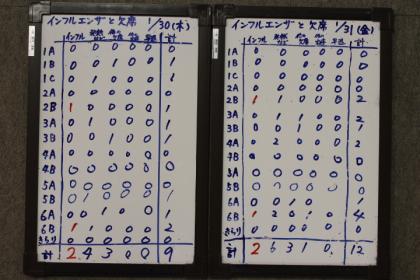 インフルエンザと欠席 1/30(木)
インフル 計
1A 0 0 0 0 0 0
1B 0 0 1 0 0 1
1C 0 1 0 0 0 1
2A 0 0 0 0 0 0
2B 1 0 0 0 0 1
3A 0 1 0 0 0 1
3B 0 0 1 0 0 1
4A 0 0 0 0 0 0
4B 0 0 0 0 0 0
5A 0 0 0 0 0 0
5B 0 0 0 0 0 0
6A 0 0 1 0 0 1
6B 1 1 0 0 0 2
きらり 0 0 0 0 0 0
計 2 4 3 0 0 9
インフルエンザと欠席 1/31(金)
インフル 計
1A 0 0 0 0 0 0
1B 0 0 0 0 0 0
1C 0 0
2A 0 0 0 0 0 0
2B 1 0 0 2
3A 0 1 1 0 0 2
3B 0 1
4A 0 2 0 0 0 2
4B 0 0 0 0 0 0
5A 0 0 0 0 0 0
5B 0 0 0 0 0 0
6A 0 1
6B 1 2 0 1 0 4
きらり 0 0 0 0 0 0
計 2 6 3 1 0 12